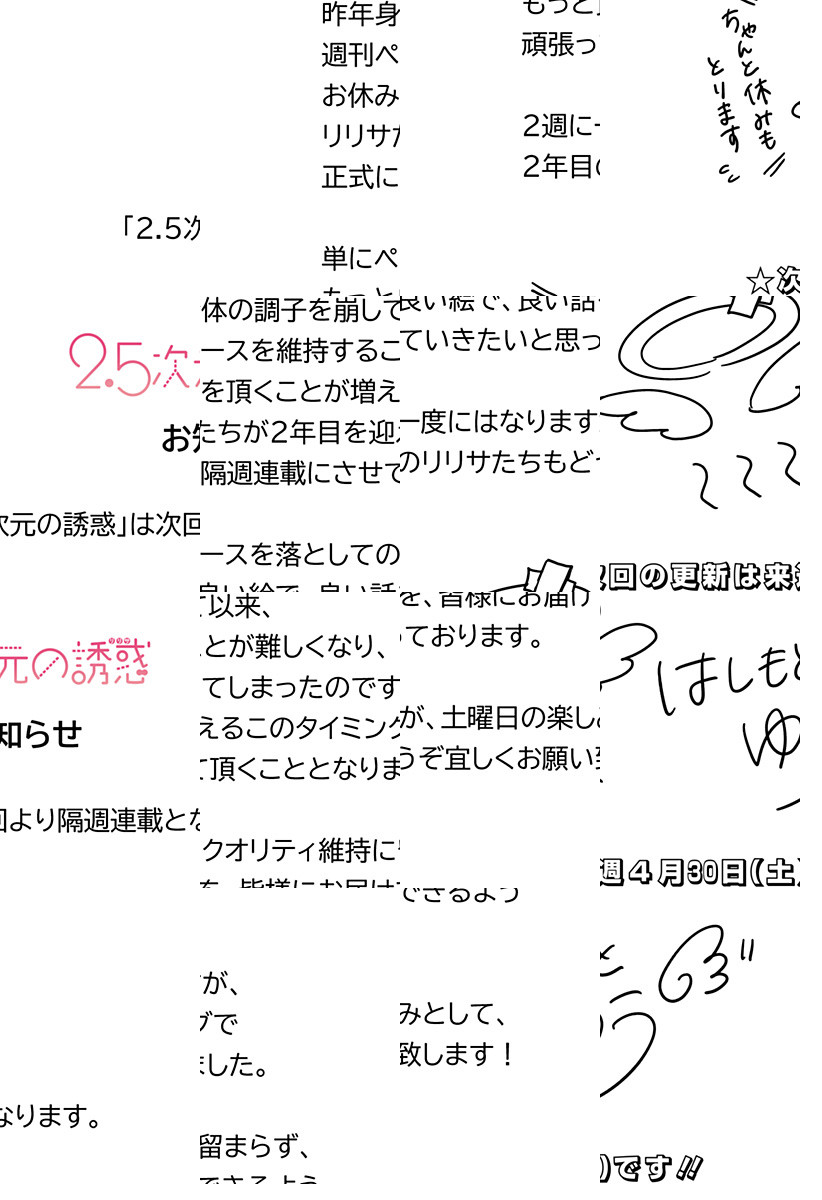 「2.5次
昨年身
週刊ペ
お休み
リリサ
正式に
単にペ
もっと
頑張っ
2週に
2年目
ちゃんと休みも
とります
☆次
2.5次
お知
次元の誘惑」は次回
体の調子を崩して
ースを維持するこ
を頂くことが増え
たちが2年目を迎
隔週連載にさせて
ースを落としての
良い絵で、良い話
ていきたいと思っ
一度にはなります
のリリサたちもど
次回の更新は来週
元の誘惑
知らせ
回より隔週連載とな
て以来、
とが難しくなり、
てしまったのです
えるこのタイミング
て頂くこととなりま
クオリティ維持に
を、皆様にお届け
っております。
が、土曜日の楽し
うぞ宜しくお願い
はしもと
ゆ
週4月30日(土)
なります。
が、
グで
ました。
留まらず、
できるよう
できるよう
みとして、
致します！
)です!!